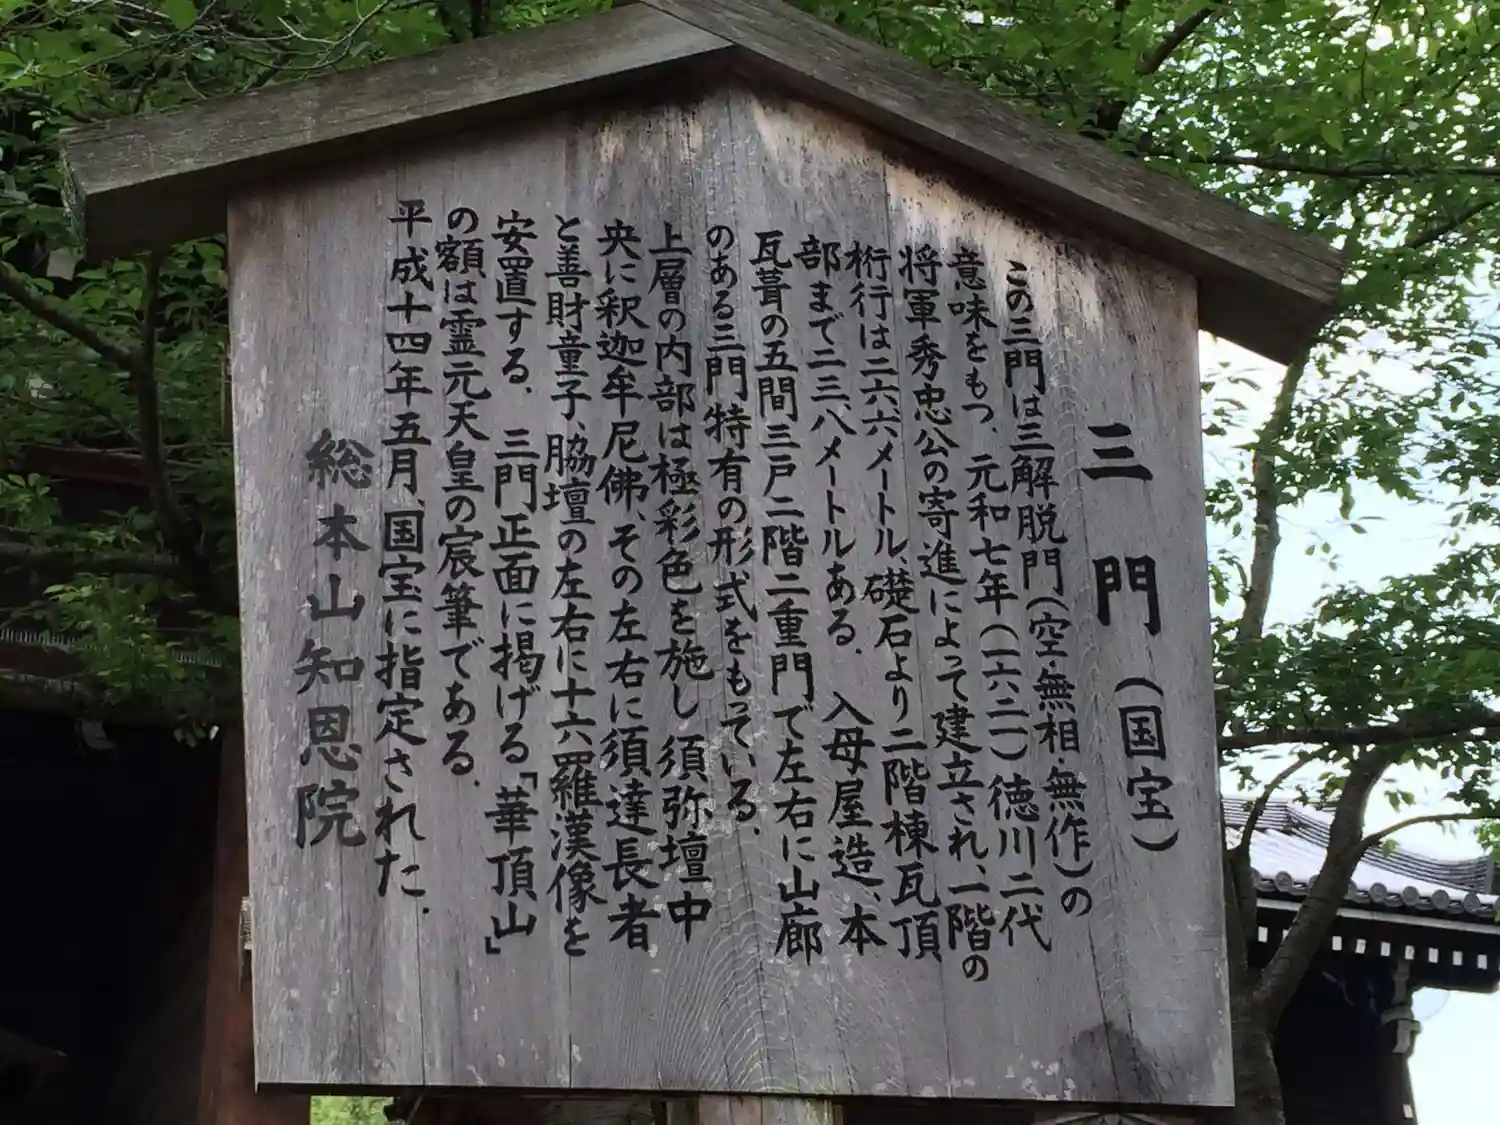 三門（国宝）
この三門は三解脱門（空・無相・無作）の
意味をもつ、元和七年（一六二一）徳川二代
将軍秀忠公の寄進によって建立され、一階の
桁行は二六、六メートル、礎石より二階棟瓦頂
部まで二三、八メートルある．入母屋造、本
瓦葺の五間三戸二階二重門で左右に山廊
のある三門特有の形式をもっている．
上層の内部は極彩色を施し須弥壇中
央に釈迦牟尼佛、その左右に須達長者
と善財童子、脇壇の左右に十六羅漢像を
安置する．三門正面に掲げる「華頂山」
の額は霊元天皇の宸筆である．
平成十四年五月、国宝に指定された．
総本山知恩院